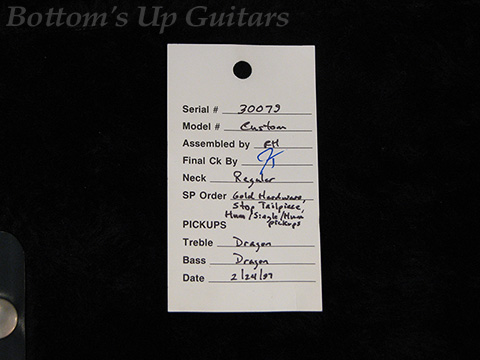 Bottom's Up Guitars
Serial # 30079
Model # Custom
Assembled by RH
Final Ck By
Neck Regular
SP Order Gold Hardware,
Stop Tailpiece,
Hum/Single/Hum
pickups
PICKUPS
Treble Dragon
Bass Dragon
Date 2/24/97